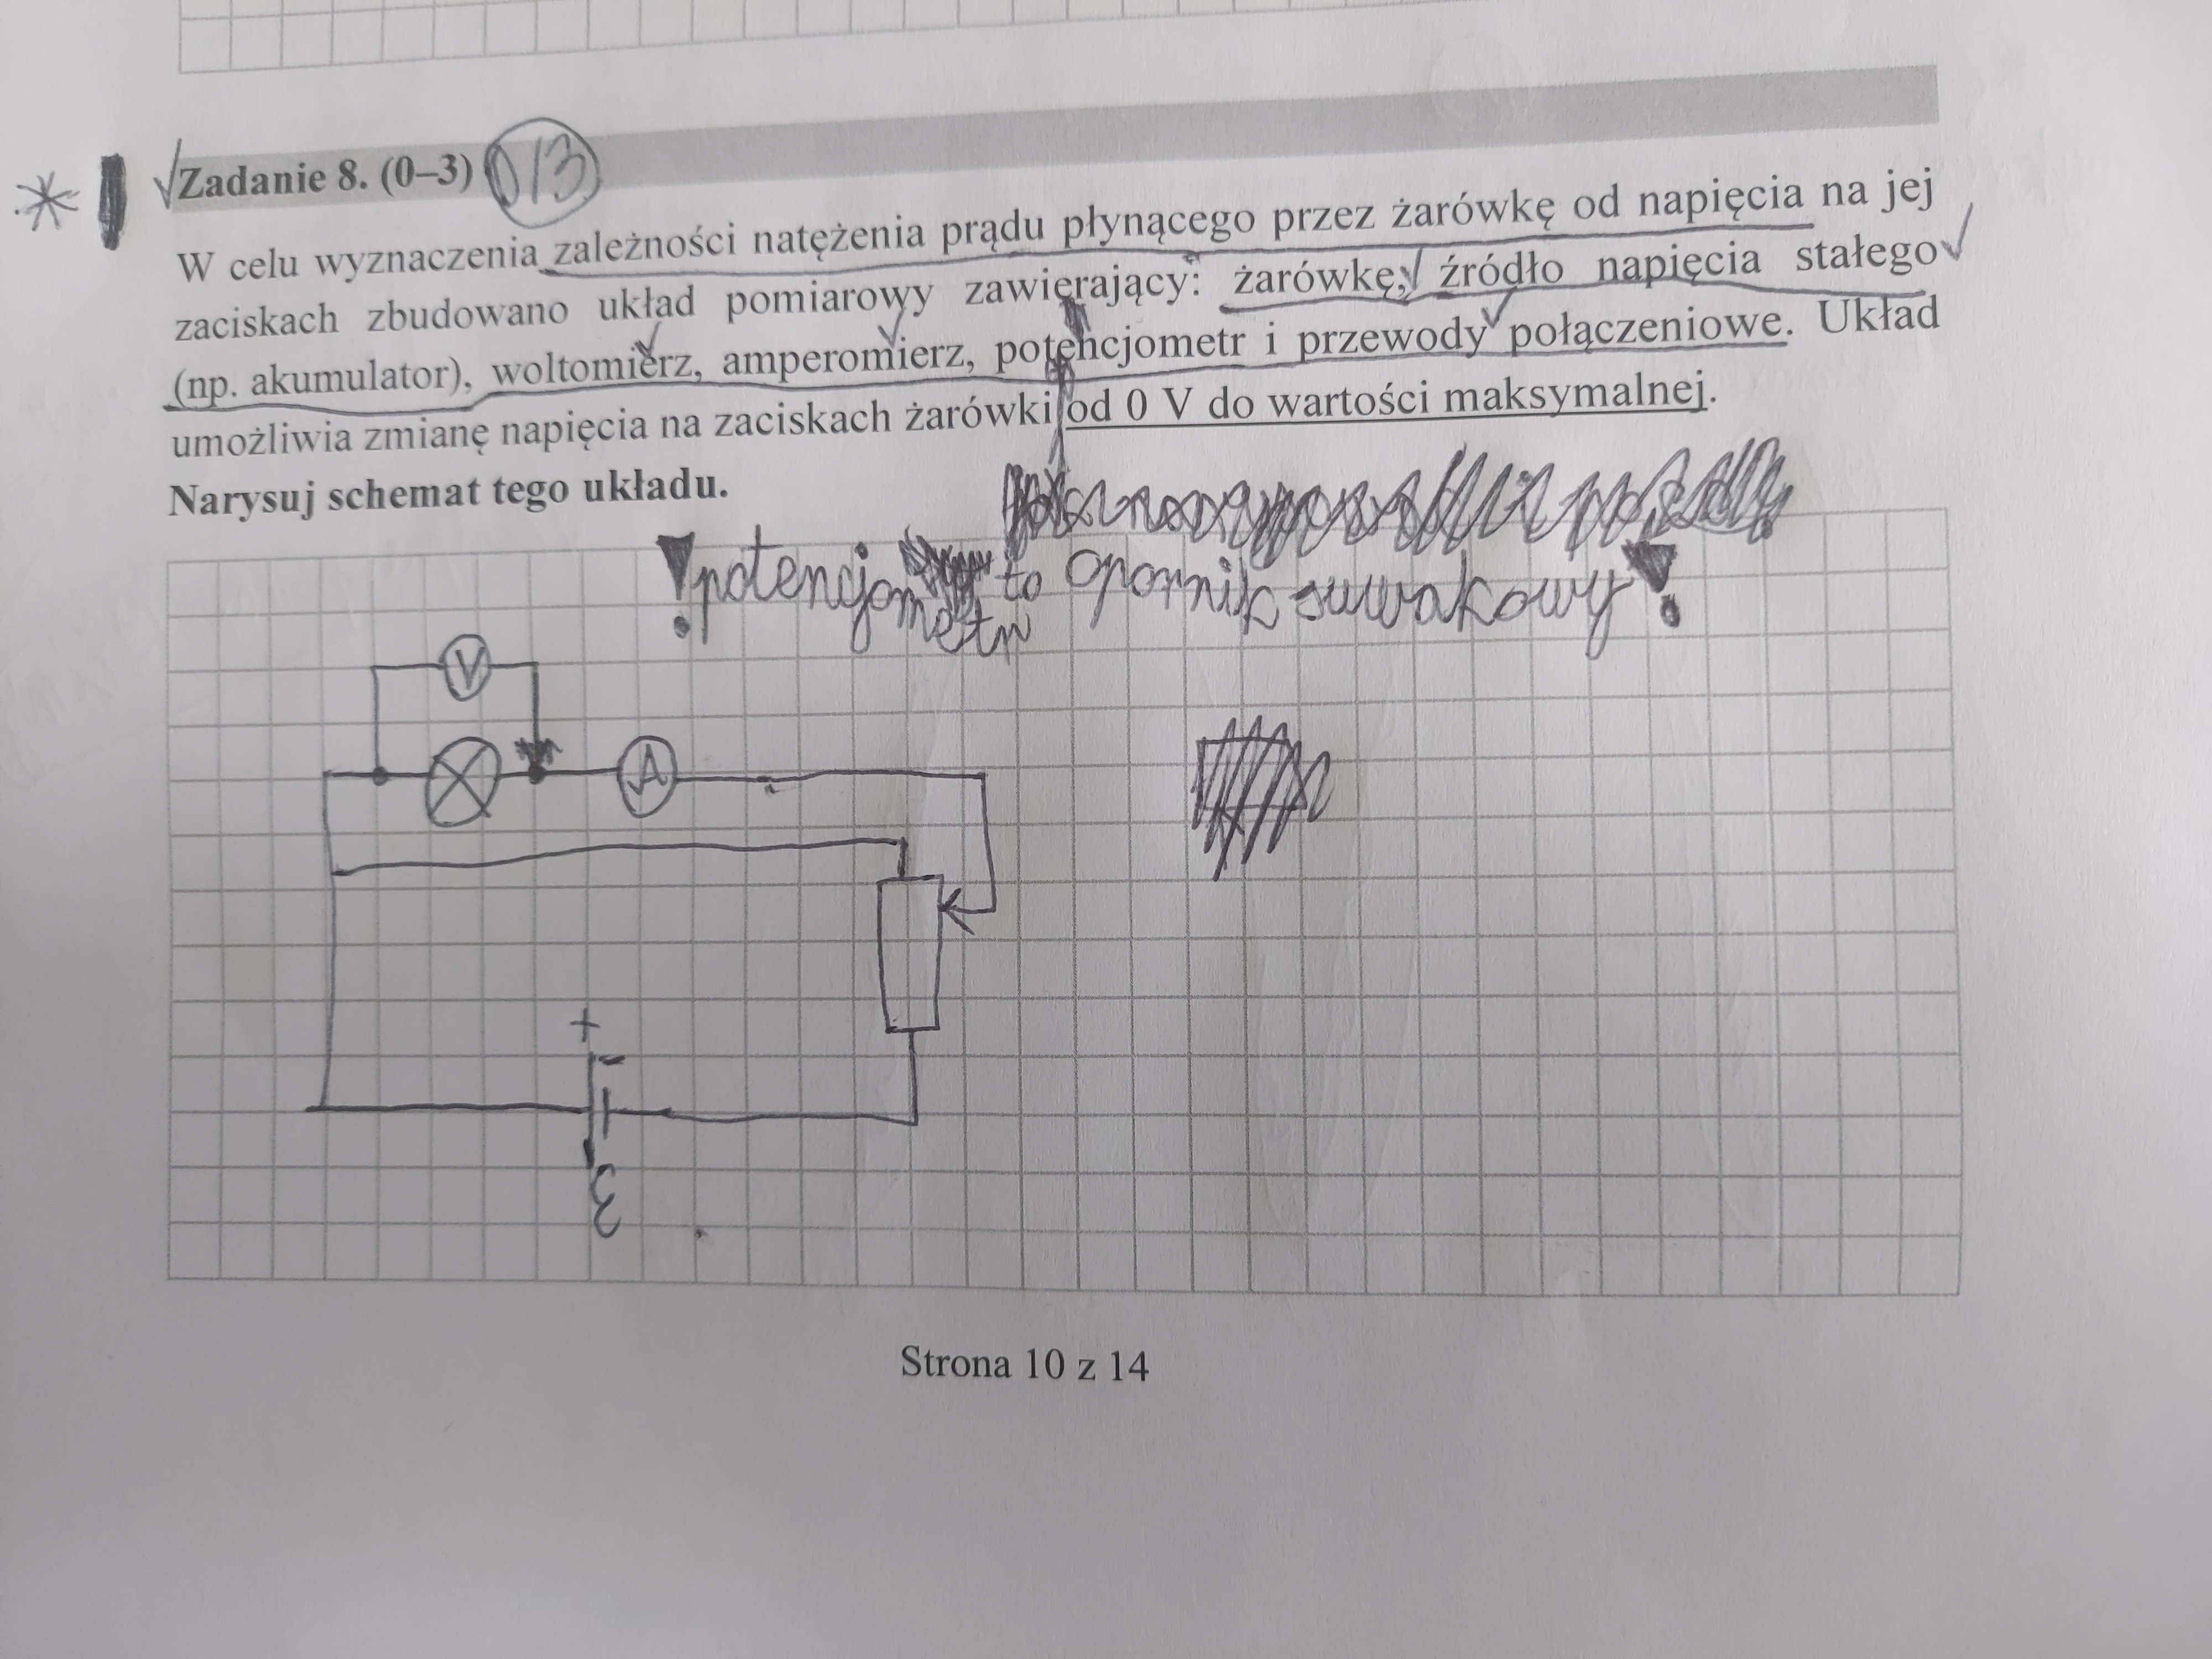 Zadanie 8. (0–3) 0/3
W celu wyznaczenia zależności natężenia prądu płynącego przez żarówkę od napięcia na jej
zaciskach zbudowano układ pomiarowy zawierający: żarówkę, źródło napięcia stałego
(np. akumulator), woltomierz, amperomierz, potencjometr i przewody połączeniowe. Układ
umożliwia zmianę napięcia na zaciskach żarówki od 0 V do wartości maksymalnej.
Narysuj schemat tego układu.
! potencjometr to opornik suwakowy !
V
A
+
-
ε
Strona 10 z 14